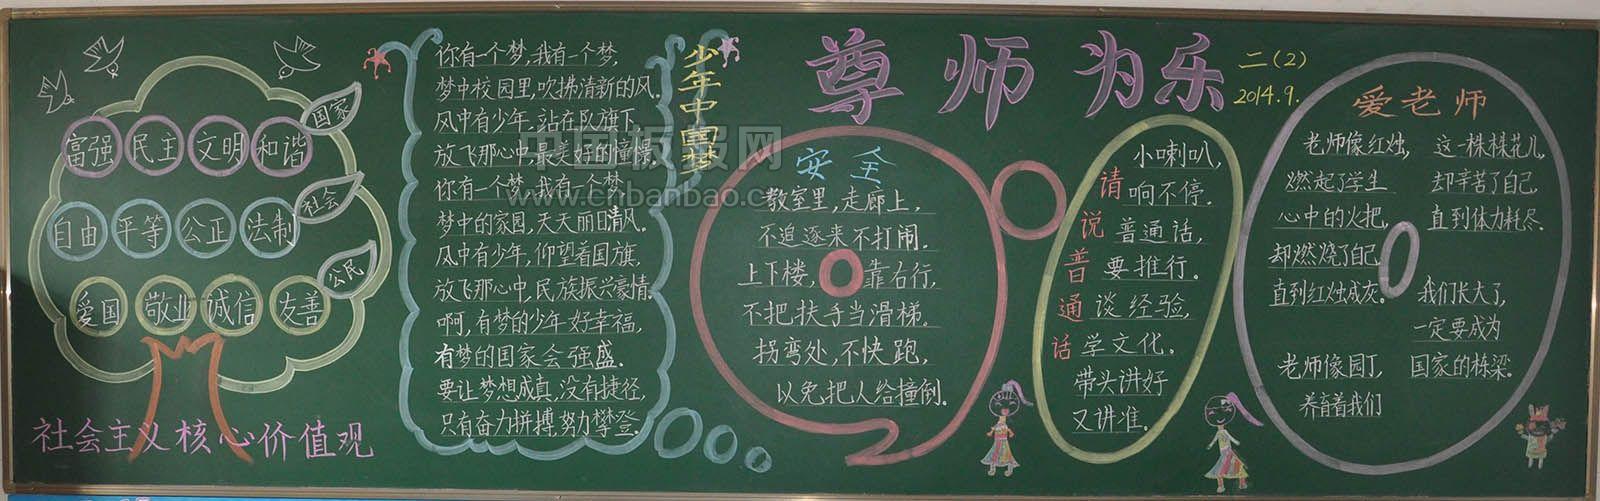 国家
富强 民主 文明 和谐
社会
自由 平等 公正 法制
公民
爱国 敬业 诚信 友善
社会主义核心价值观
少年中国梦
你有一个梦,我有一个梦,
梦中校园里,吹拂清新的风。
风中有少年,站在队旗下,
放飞那心中,最美好的憧憬。
你有一个梦,我有一个梦,
梦中的家园,天天丽日清风。
风中有少年,仰望着国旗,
放飞那心中,民族振兴豪情。
啊,有梦的少年好幸福,
有梦的国家会强盛。
要让梦想成真,没有捷径,
只有奋力拼搏,努力攀登。
中国板报网
www.cnbanbao.c
尊师为乐
二(2)
2014.9.
安全
教室里,走廊上,
不追逐来不打闹。
上下楼,靠右行,
不把扶手当滑梯。
拐弯处,不快跑,
以免把人给撞倒。
请说普通话
小喇叭,
响不停。
普通话,
要推行。
谈经验,
学文化。
带头讲好
又讲准。
爱老师
老师像红烛,
燃起了学生
心中的火把,
却燃烧了自己
直到红烛成灰。
老师像园丁,
养育着我们
这一株株花儿,
却辛苦了自己
直到体力耗尽。
我们长大了,
一定要成为
国家的栋梁。